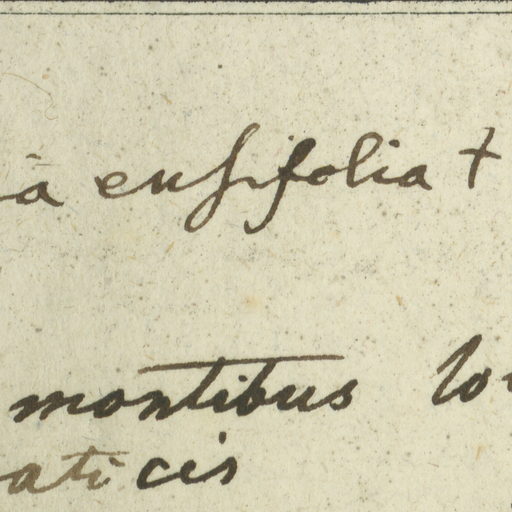 ia ensifolia +
montibus lo
aticis